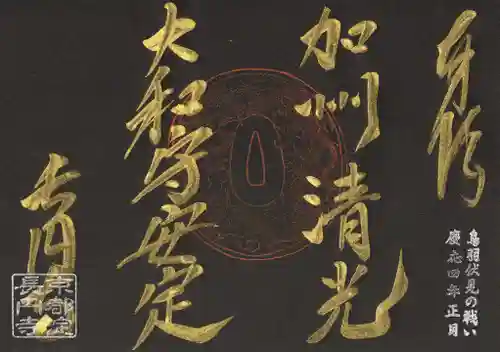 奉拝
加州清光
大和守安定
長円寺
鳥羽伏見の戦い
慶応四年正月
京都淀
長円寺